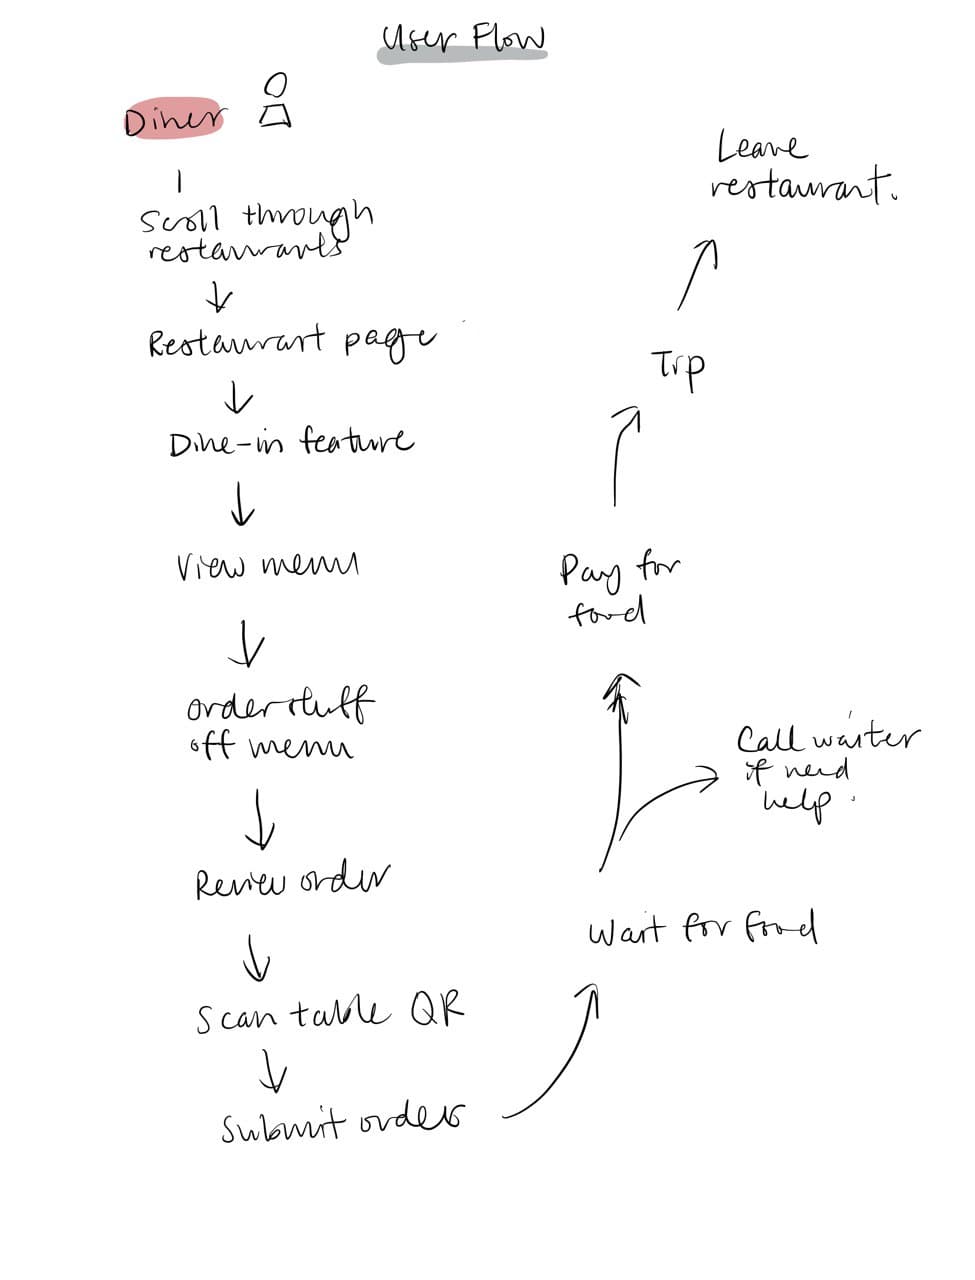 User Flow
Diner
Scroll through
restaurants
Restaurant page
Dine-in feature
View menu
Order stuff
off menu
Review order
Scan table QR
Submit orders
Wait for food
Call waiter
if need
help.
Pay for
food
Tip
Leave
restaurant.